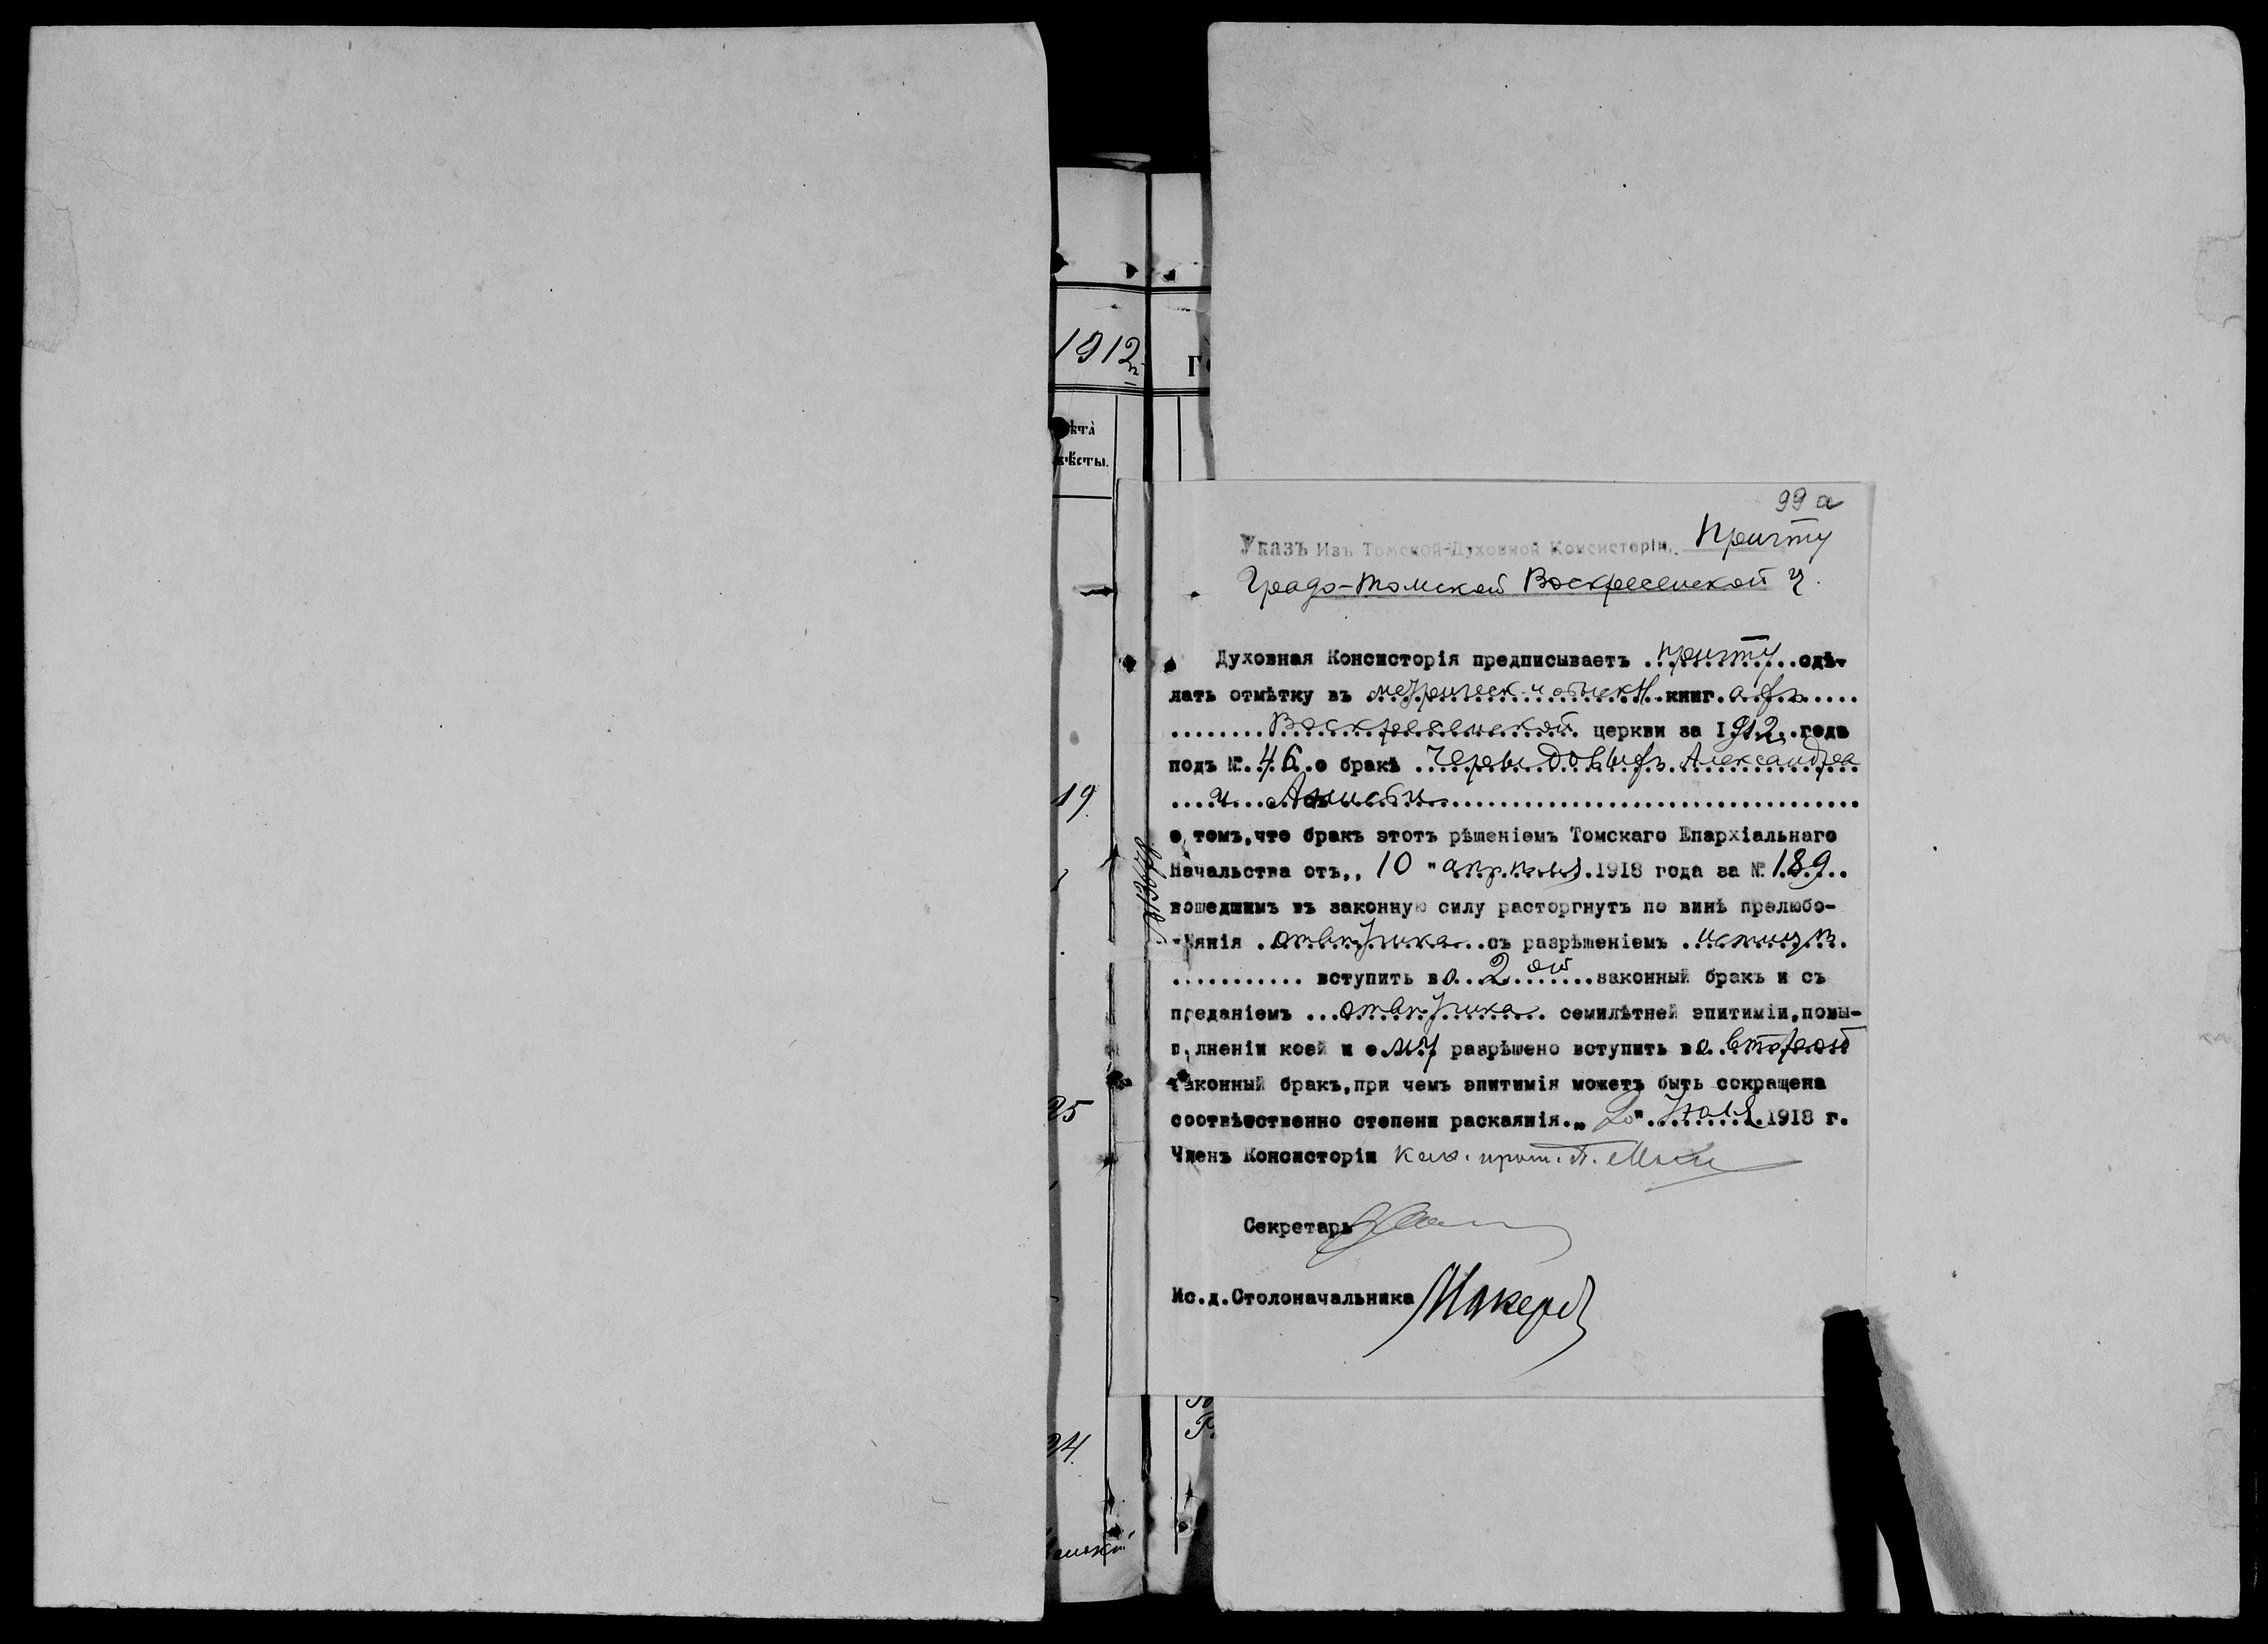 1912
Г
ѣта
ѣсты.
19.
25
34.
99 а
Указъ Изъ Томской-Духовной Консисторіи, Причту
Градо-Томской Воскресенской ц.
Духовная Консисторія предписываетъ причту сдѣ-
лать отмѣтку въ книг.
Воскресенской церкви за 1912 года
подъ №.46.о бракѣ Александра
и
о томъ,что бракъ этотъ рѣшеніемъ Томскаго Епархіальнаго
Начальства отъ,, 10 " апрѣля.1918 года за №.189..
вошедшимъ въ законную силу расторгнутъ по винѣ прелюбо-
ѣянія отвѣтчика съ разрѣшеніемъ истицѣ
вступить во 2 ой законный бракъ и съ
преданіемъ отвѣтчика семилѣтней эпитиміи,повы-
п лненіи коей и ему разрѣшено вступить во второй
законный бракъ,при чемъ эпитимія можетъ быть сокращена
соотвѣтственно степени раскаянія.„ 2" Іюля.1918 г.
Членъ Консисторіи прот. П.
Секретарь
Ис.д.Столоначальника Макеров